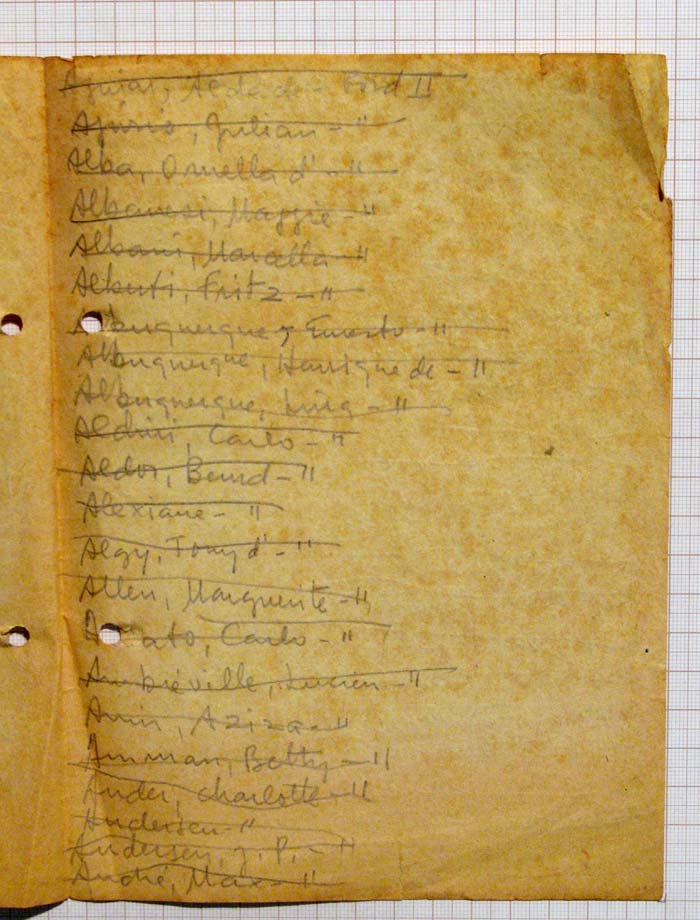 Aguiar, Alda de - Ford II
Ajúrio, Julian - "
Alba, Ornella d' - "
Albanesi, Maggie - "
Albani, Marcella - "
Alberti, Fritz - "
Albuquerque, Ernesto - "
Albuquerque, Henrique de - "
Albuquerque, Luiz - "
Aldini, Carlo - "
Aldor, Bernd - "
Alexiane - "
Algy, Tony d' - "
Allen, Marguerite - "
Amato, Carlo - "
Ambréville, Lucien - "
Amir, Aziza - "
Amman, Betty - "
Ander, Charlotte - "
Andersen - "
Andersen, J. P. - "
André, Max - "